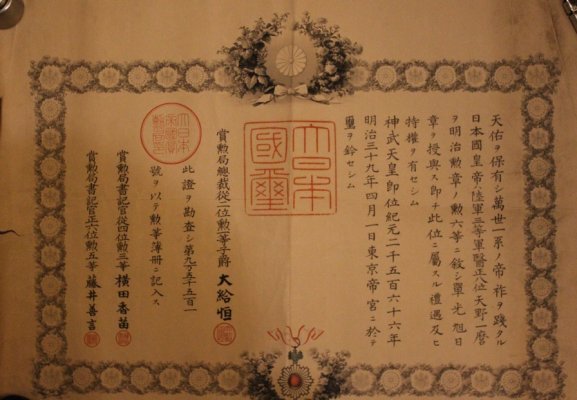 天佑ヲ保有シ萬世一系ノ帝祚ヲ踐タル
日本國皇帝ハ陸軍三等軍醫正八位天野一麿
ヲ明治勲章ノ勲六等ニ敍シ單光旭日
章ヲ授與ス即チ此位ニ屬スル禮遇及ヒ
特權ヲ有セシム
神武天皇即位紀元二千五百六十六年
明治三十九年四月一日東京帝宮ニ於テ
璽ヲ鈐セシム
大日本
國璽
賞勲局總裁從二位勲一等子爵 大給恒
此證ヲ勘査シ第九万五千五百一
號ヲ以テ勲等簿冊ニ記入ス
賞勲局書記官從四位勲三等 横田香苗
賞勲局書記官正六位勲五等 藤井善言